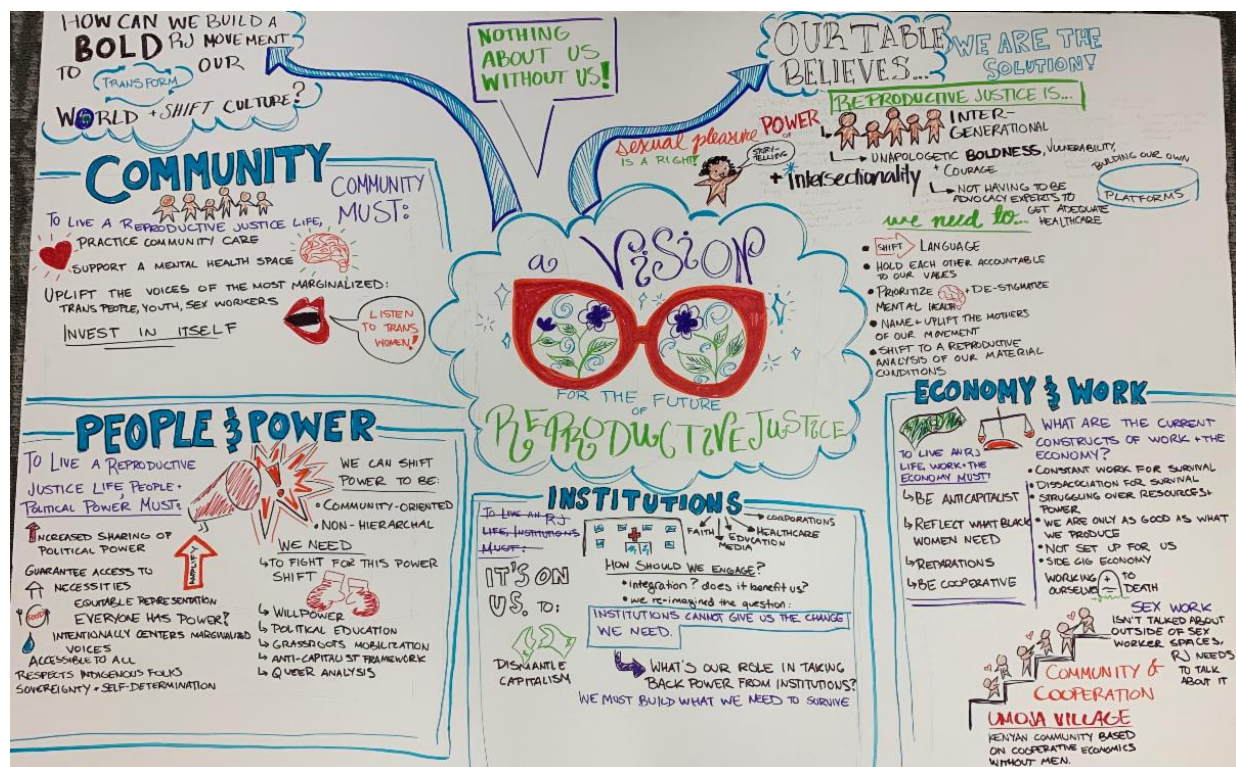 HOW CAN WE BUILD A
BOLD RJ MOVEMENT
TO TRANSFORM OUR
WORLD + SHIFT CULTURE?
NOTHING
ABOUT US
WITHOUT US!
OUR TABLE
BELIEVES...
WE ARE THE
SOLUTION!
REPRODUCTIVE JUSTICE IS...
sexual pleasure
IS A RIGHT!
POWER
OF
STORY-
TELLING
+ intersectionality
INTER-
GENERATIONAL
UNAPOLOGETIC BOLDNESS, VULNERABILITY,
+ COURAGE
NOT HAVING TO BE
ADVOCACY EXPERTS TO
GET ADEQUATE
HEALTHCARE
BULDING OUR OWN
PLATFORMS
we need to...
• SHIFT LANGUAGE
• HOLD EACH OTHER ACCOUNTABLE
TO OUR VALUES
• PRIORITIZE + DE-STIGMATIZE
MENTAL HEALTH
• NAME + UPLIFT THE MOTHERS
OF OUR MOVEMENT
• SHIFT TO A REPRODUCTIVE
ANALYSIS OF OUR MATERIAL
CONDITIONS
COMMUNITY
TO LIVE A REPRODUCTIVE JUSTICE LIFE,
COMMUNITY
MUST:
PRACTICE COMMUNITY CARE
SUPPORT A MENTAL HEALTH SPACE
UPLIFT THE VOICES OF THE MOST MARGINALIZED:
TRANS PEOPLE, YOUTH, SEX WORKERS
INVEST IN ITSELF
LISTEN
TO TRANS
WOMEN!
a VISION
FOR THE FUTURE
OF
REPRODUCTIVE JUSTICE
PEOPLE & POWER
TO LIVE A REPRODUCTIVE
JUSTICE LIFE, PEOPLE +
POLITICAL POWER MUST:
INCREASED SHARING OF
POLITICAL POWER
GUARANTEE ACCESS TO
NECESSITIES
FOOD
EQUITABLE REPRESENTATION
EVERYONE HAS POWER?
INTENTIONALLY CENTERS MARGINALIZED
VOICES
ACCESSIBLE TO ALL
RESPECTS INDIGENOUS FOLKS
SOVEREIGNTY + SELF-DETERMINATION
AMPLIFY
WE CAN SHIFT
POWER TO BE:
• COMMUNITY-ORIENTED
• NON-HIERARCHAL
WE NEED
TO FIGHT FOR THIS POWER
SHIFT
WILLPOWER
POLITICAL EDUCATION
GRASSROOTS MOBILIZATION
ANTI-CAPITALIST FRAMEWORK
QUEER ANALYSIS
INSTITUTIONS
TO LIVE AN RJ
LIFE, INSTITUTIONS
MUST:
IT'S ON
US. TO:
DISMANTLE
CAPITALISM
CORPORATIONS
HEALTHCARE
FAITH
EDUCATION
MEDIA
HOW SHOULD WE ENGAGE?
• integration? does it benefit us?
• we re-imagined the question:
INSTITUTIONS CANNOT GIVE US THE CHANGE
WE NEED.
WHAT'S OUR ROLE IN TAKING
BACK POWER FROM INSTITUTIONS?
WE MUST BUILD WHAT WE NEED TO SURVIVE
ECONOMY & WORK
TO LIVE AN RJ
LIFE, WORK + THE
ECONOMY MUST:
BE ANTICAPITALIST
REFLECT WHAT BLACK
WOMEN NEED
REPARATIONS
BE COOPERATIVE
WHAT ARE THE CURRENT
CONSTRUCTS OF WORK + THE
ECONOMY?
• CONSTANT WORK FOR SURVIVAL
• DISSACOCIATION FOR SURVIVAL
• STRUGGLING OVER RESOURCES +
POWER
• WE ARE ONLY AS GOOD AS WHAT
WE PRODUCE
• NOT SET UP FOR US
• SIDE GIG ECONOMY
WORKING TO
OURSELVES DEATH
SEX WORK
ISN'T TALKED ABOUT
OUTSIDE OF SEX
WORKER SPACES,
RJ NEEDS
TO TALK
ABOUT IT
COMMUNITY &
COOPERATION
UMOJA VILLAGE
KENYAN COMMUNITY BASED
ON COOPERATIVE ECONOMICS
WITHOUT MEN.